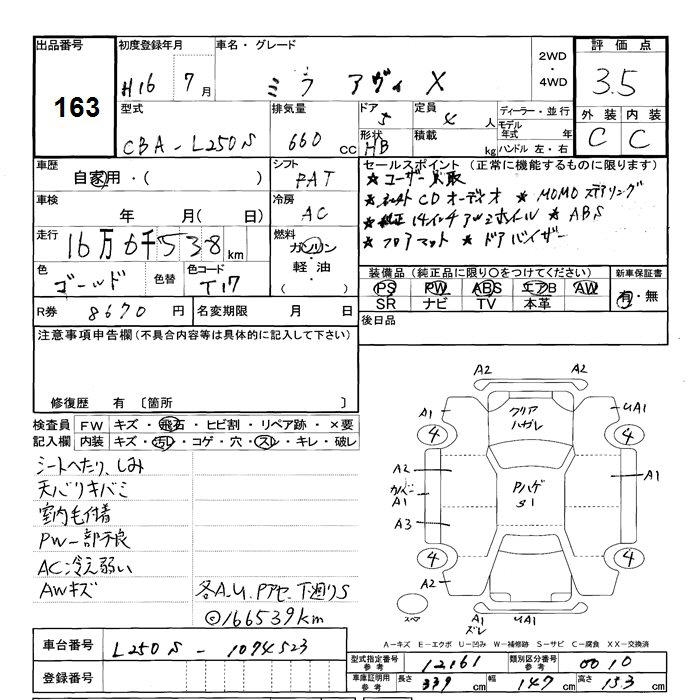 出品番号 初度登録年月 車名・グレード 2WD・4WD 評価点
163 H16 7月 ミラ アヴィ X 3.5
型式 排気量 ドア 定員 ディーラー・並行 外装 内装
CBA-L250S 660 CC 5 4人 モデル年式 年 C C
形状 積載 ハンドル 左・右
HB kg
車歴 シフト セールスポイント (正常に機能するものに限ります)
自家用・( ) FAT ★ユーザー買取
車検 冷房 CDオーディオ ★MOMOステアリング
年 月( 日) AC ★純正14インチアルミホイル ★ABS
走行 燃料 ★フロアマット ★ドアバイザー
16万6千538km ガソリン・軽油・( )
色 色替 色コード 装備品 (純正品に限り○をつけてください) 新車保証書
ゴールド T17 PS PW ABS エアB AW 有・無
SR ナビ TV 本革
R券 8670円 名変期限 月 日 後日品
注意事項申告欄 (不具合内容等は具体的に記入して下さい)
修復歴 有 〔箇所 〕
検査員 FW キズ・飛石・ヒビ割・リペア跡・×要
記入欄 内装 キズ・汚レ・コゲ・穴・スレ・キレ・破レ
シートへたり、しみ
天バリキバミ
室内毛付着
PW一部不良
AC冷え弱い
AWキズ 各A.U.Pアセ.下廻りS
◎166539km
A2 A2
A1 クリアハガレ UA1
4 4
A2 A1
カバーA1 PハゲS1
A3
4 4
A2
スペア A1ズレ UA1
A-キズ E-エクボ U-凹み W-補修跡 S-サビ C-腐食 XX-交換済
車台番号 L250S-1094523
型式指定番号参考 12161 類別区分番号参考 0010
登録番号
車庫証明用参考 長さ 339cm 幅 147cm 高さ 153cm